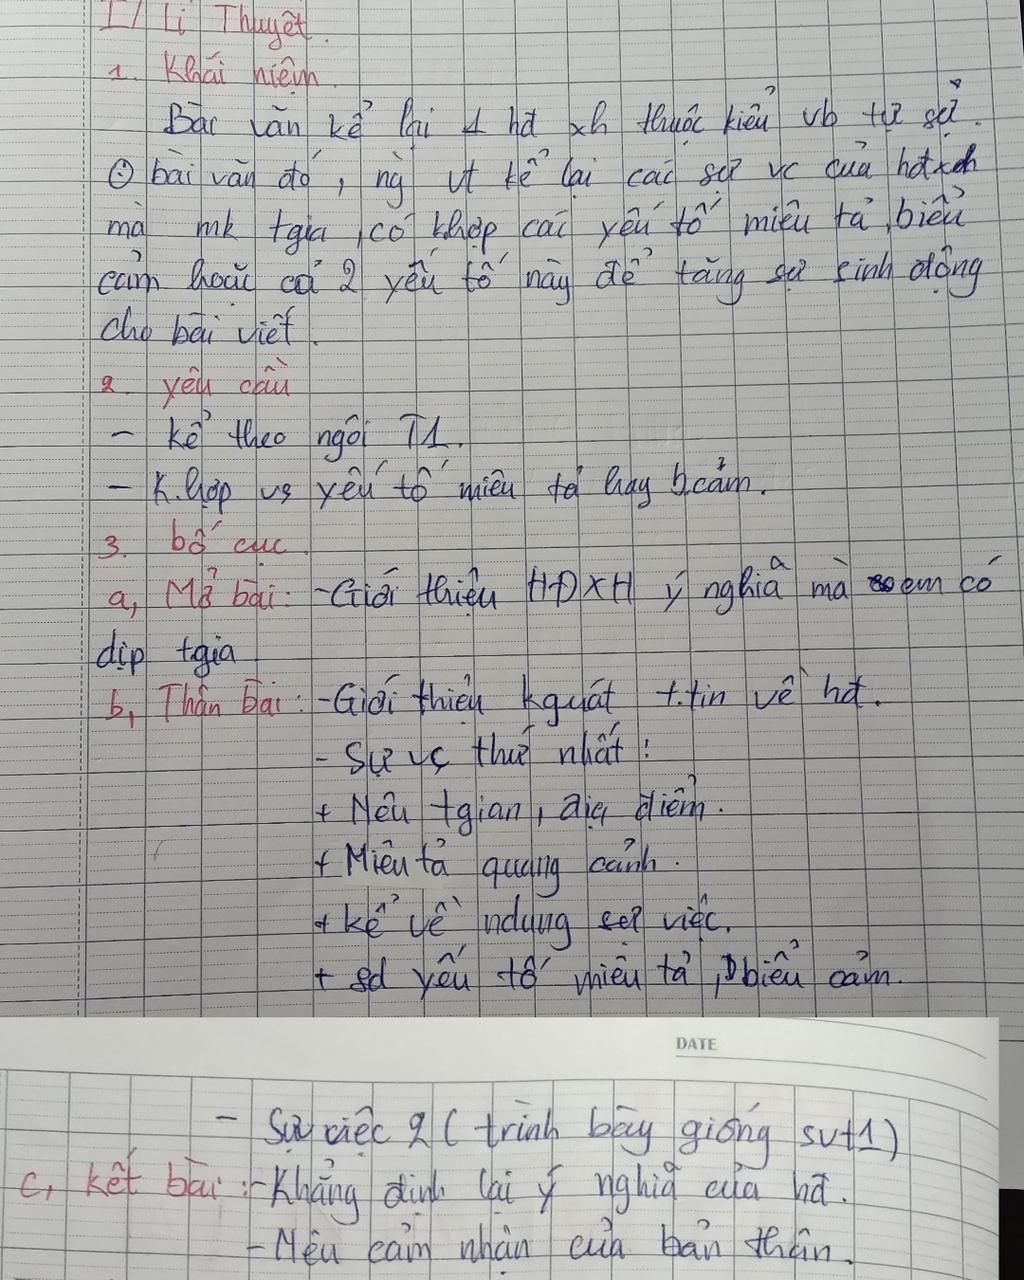 I/ Lí Thuyết.
1. Khái niệm
Bài văn kể lại 1 hđ xh thuộc kiểu vb tự sự.
Ở bài văn đó, ng vt kể lại các sự vc của hđxh
mà mk tgia, có khợp các yếu tố miêu tả, biểu
cảm hoặc cả 2 yếu tố này để tăng sự sinh động
cho bài viết.
2. yêu cầu
- kể theo ngôi T1.
- K.hợp vs yếu tố miêu tả hay b.cảm.
3. bố cục
a, Mở bài: - Giới thiệu HĐXH ý nghĩa mà em có
dịp tgia
b, Thân bài: - Giới thiệu kquát t.tin về hđ.
- Sự vc thứ nhất:
+ Nêu tgian, địa điểm.
+ Miêu tả quang cảnh.
+ kể về ndung sự việc.
+ sd yếu tố miêu tả, biểu cảm.
DATE
- Sự việc 2 ( trình bày giống svt1)
c, kết bài: - Khẳng định lại ý nghĩa của hđ.
- Nêu cảm nhận của bản thân.